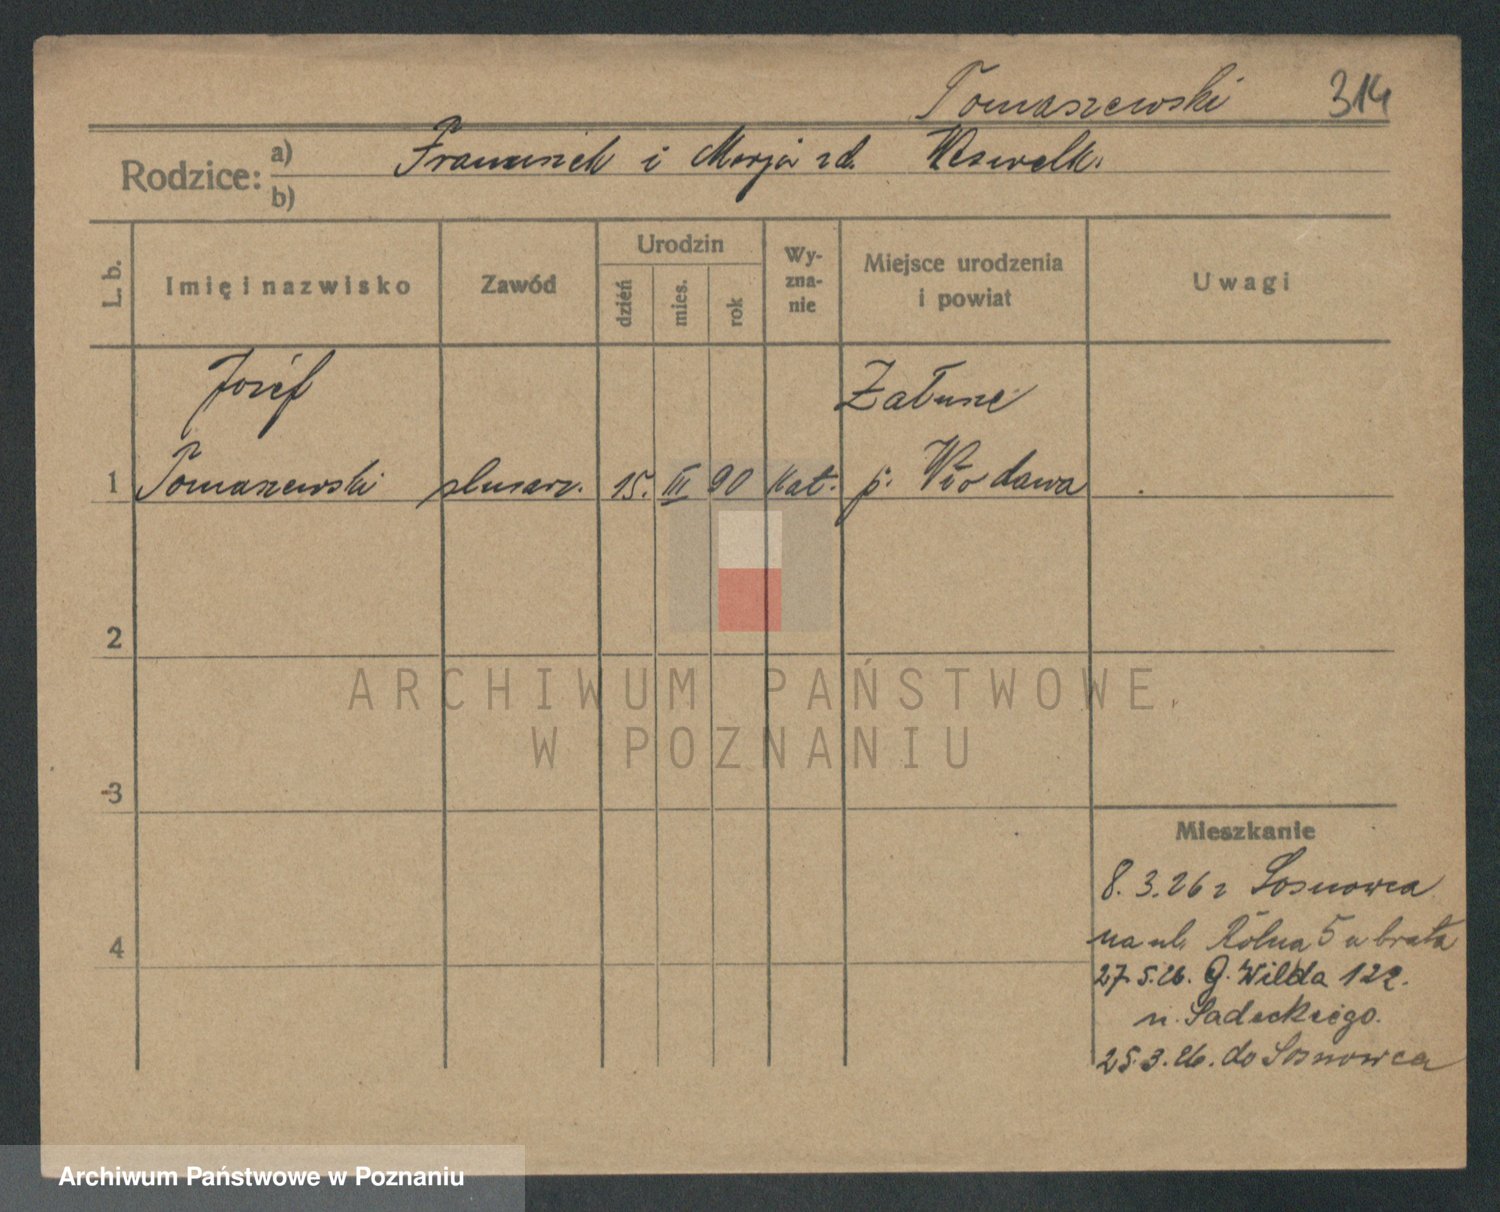 Tomaszewski 314
Rodzice: a) Franciszek i Marja zd.
b)
L. b. Imię i nazwisko Zawód Urodzin dzień mies. rok Wy-zna-nie Miejsce urodzenia i powiat Uwagi
Józef Załucze
1 Tomaszewski ślusarz. 15. III 90 kat. p. Włodawa
2
ARCHIWUM PAŃSTWOWE
W POZNANIU
3
Mieszkanie
8.3.26 z Sosnowca
4 na ul. Rólna 5 u brata
27.5.26. G. Wilda 122.
u. Sadeckiego.
25.3.26. do Sosnowca
Archiwum Państwowe w Poznaniu